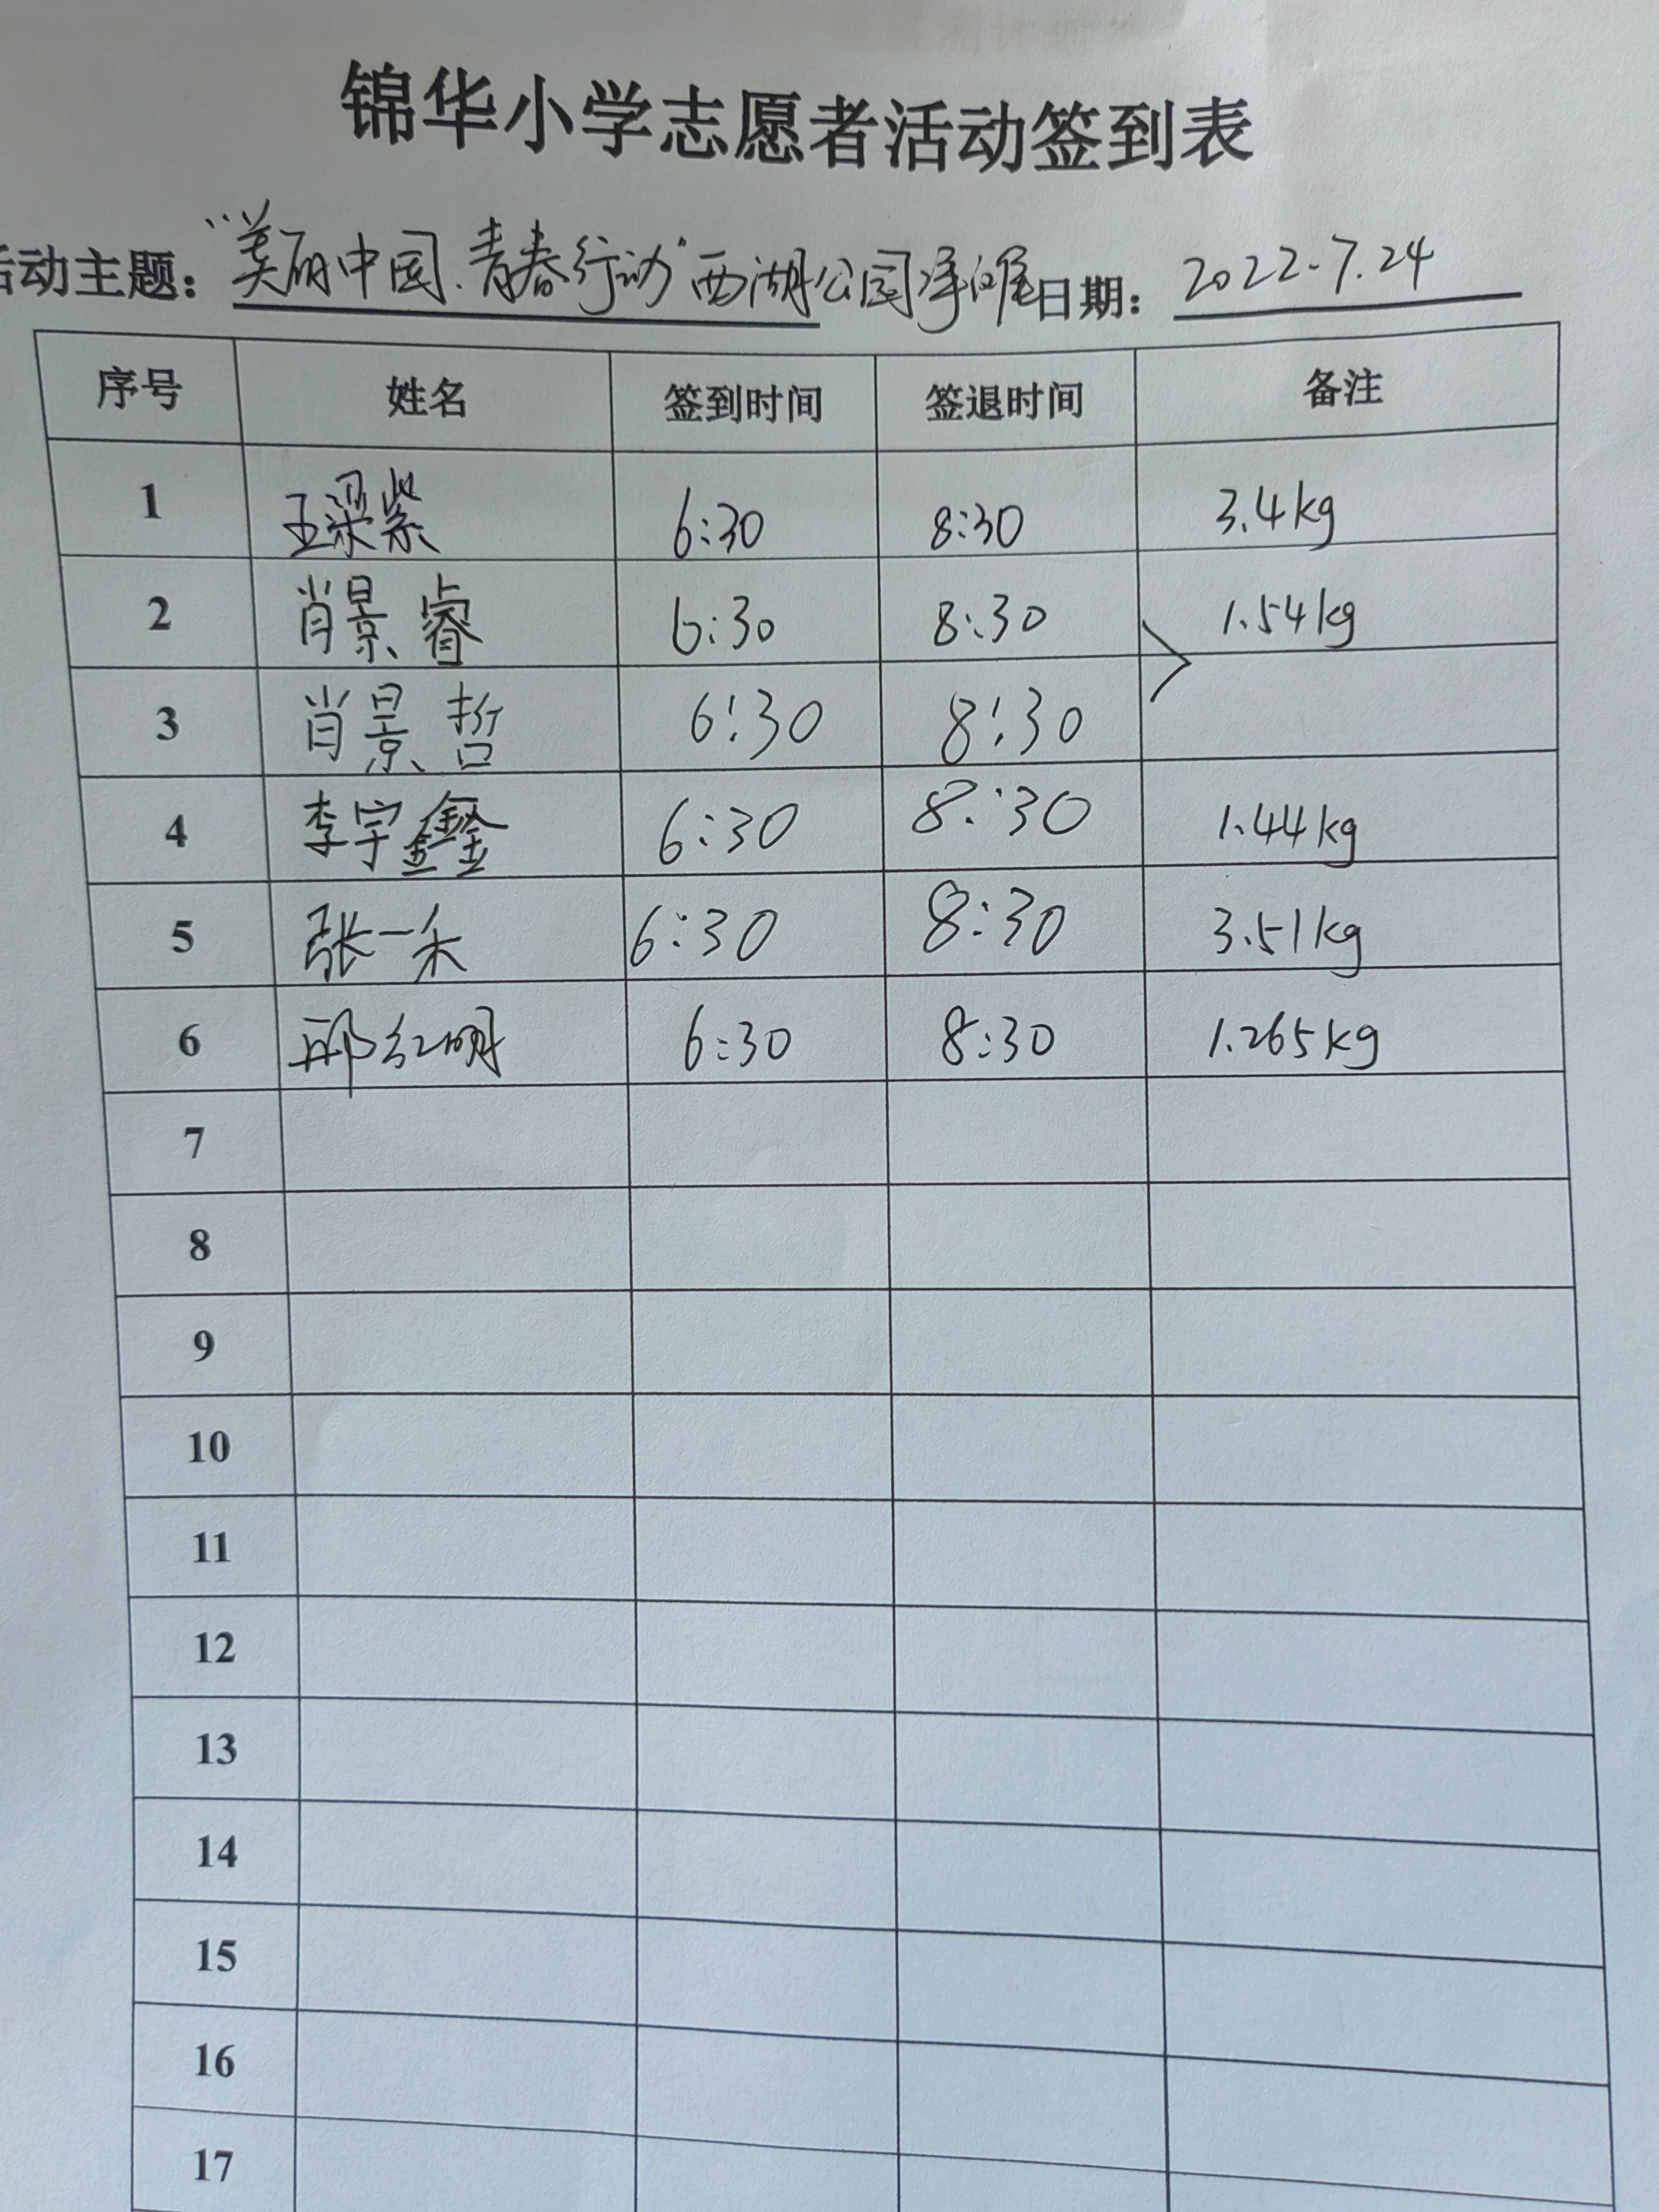 锦华小学志愿者活动签到表
活动主题："美丽中国.青春行动"西湖公园净滩日期：2022.7.24
序号 姓名 签到时间 签退时间 备注
1 王梁紫 6:30 8:30 3.4kg
2 肖景睿 6:30 8:30 1.54kg
3 肖景哲 6:30 8:30
4 李宇鑫 6:30 8:30 1.44kg
5 张一禾 6:30 8:30 3.51kg
6 邴红明 6:30 8:30 1.265kg
7
8
9
10
11
12
13
14
15
16
17